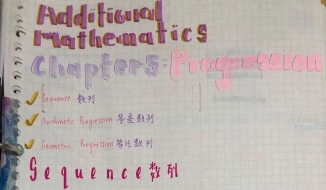 Additional
Mathematics
Chapter5: Progression
Sequence 数列
Arithmetic Progression 等差数列
Geometric Progression 等比数列
Sequence 数列